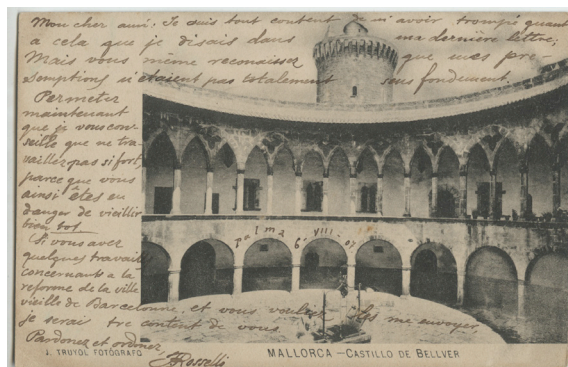 Mon cher ami: Je suis tout content de m'avoir trompé quant
a cela que je disais dans ma dernière lettre;
Mais vous même reconaissez que mes pre
somptions n'étaient pas totalement sens fondement.
Permetez
maintenant
que je vous con-
seille que ne tra-
vaillez pas si fort,
parce que vous
ainsi êtes en
danger de vieillir
bien tot.
Si vous avez
quelques travails
concernant a la
reforme de la ville
vieille de Barcelonne, et vous voulez les me envoyer,
je serai tre content de vous.
Pardonez et ordonez,
JRosselló
Palma 6 VIII-07
J. TRUYOL FOTÓGRAFO
MALLORCA - CASTILLO DE BELLVER